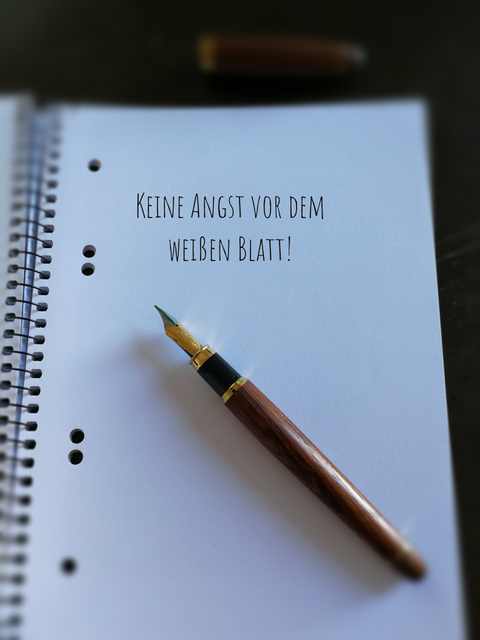 Keine Angst vor dem
weißen Blatt!